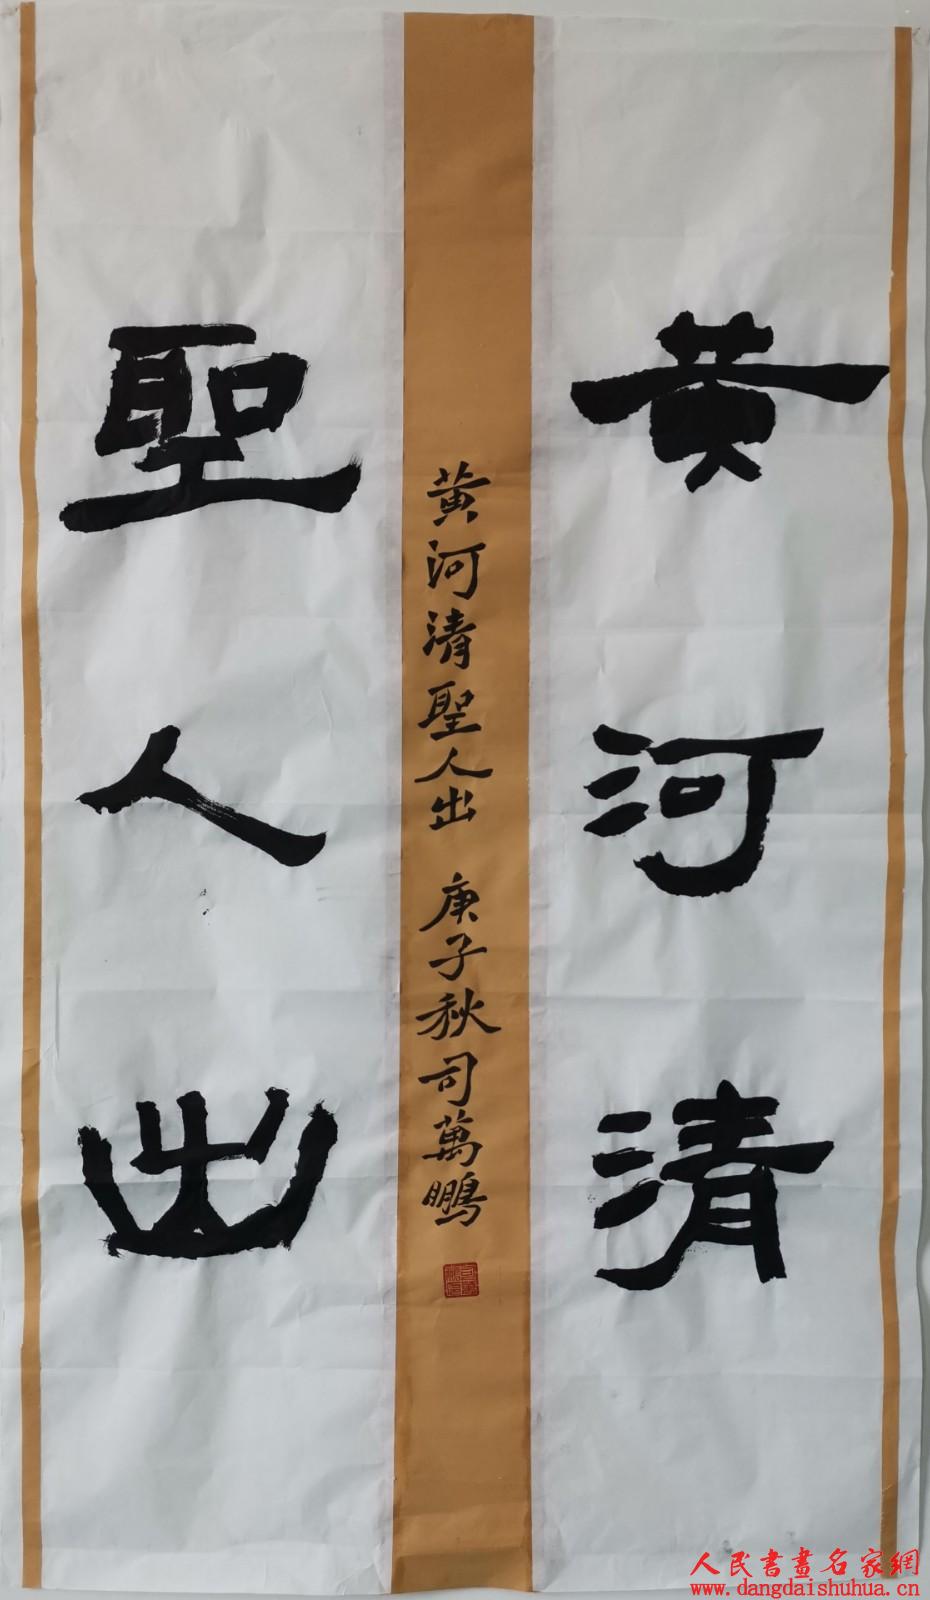 黄河清
黄河清聖人出 庚子秋司萬鵬
聖人出
人民書畫名家網
www.dangdaishuhua.cn